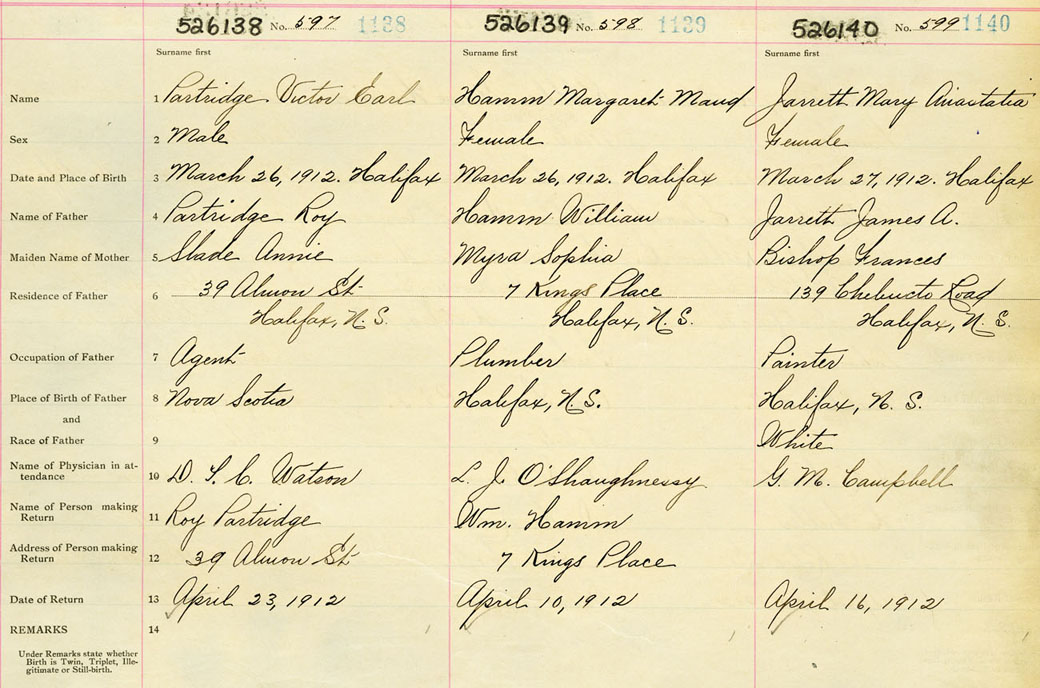 526138 No. 597 1138 526139 No. 598 1139 526140 No. 599 1140
Surname first Surname first Surname first
Name 1 Partridge Victor Earl Hamm Margaret Maud Jarrett Mary Anastatia
Sex 2 Male Female Female
Date and Place of Birth 3 March 26, 1912. Halifax March 26, 1912. Halifax March 27, 1912. Halifax
Name of Father 4 Partridge Roy Hamm William Jarrett James A.
Maiden Name of Mother 5 Slade Annie Myra Sophia Bishop Frances
Residence of Father 6 39 Almon St 7 Kings Place 139 Chebucto Road
Halifax, N.S. Halifax, N.S. Halifax, N.S.
Occupation of Father 7 Agent Plumber Painter
Place of Birth of Father 8 Nova Scotia Halifax, N.S. Halifax, N.S.
and
Race of Father 9 White
Name of Physician in at-
tendance 10 D. S. C. Watson L. J. O'Shaughnessy G. M. Campbell
Name of Person making
Return 11 Roy Partridge Wm. Hamm
Address of Person making
Return 12 39 Almon St 7 Kings Place
Date of Return 13 April 23, 1912 April 10, 1912 April 16, 1912
REMARKS 14
Under Remarks state whether
Birth is Twin, Triplet, Ille-
gitimate or Still-birth.